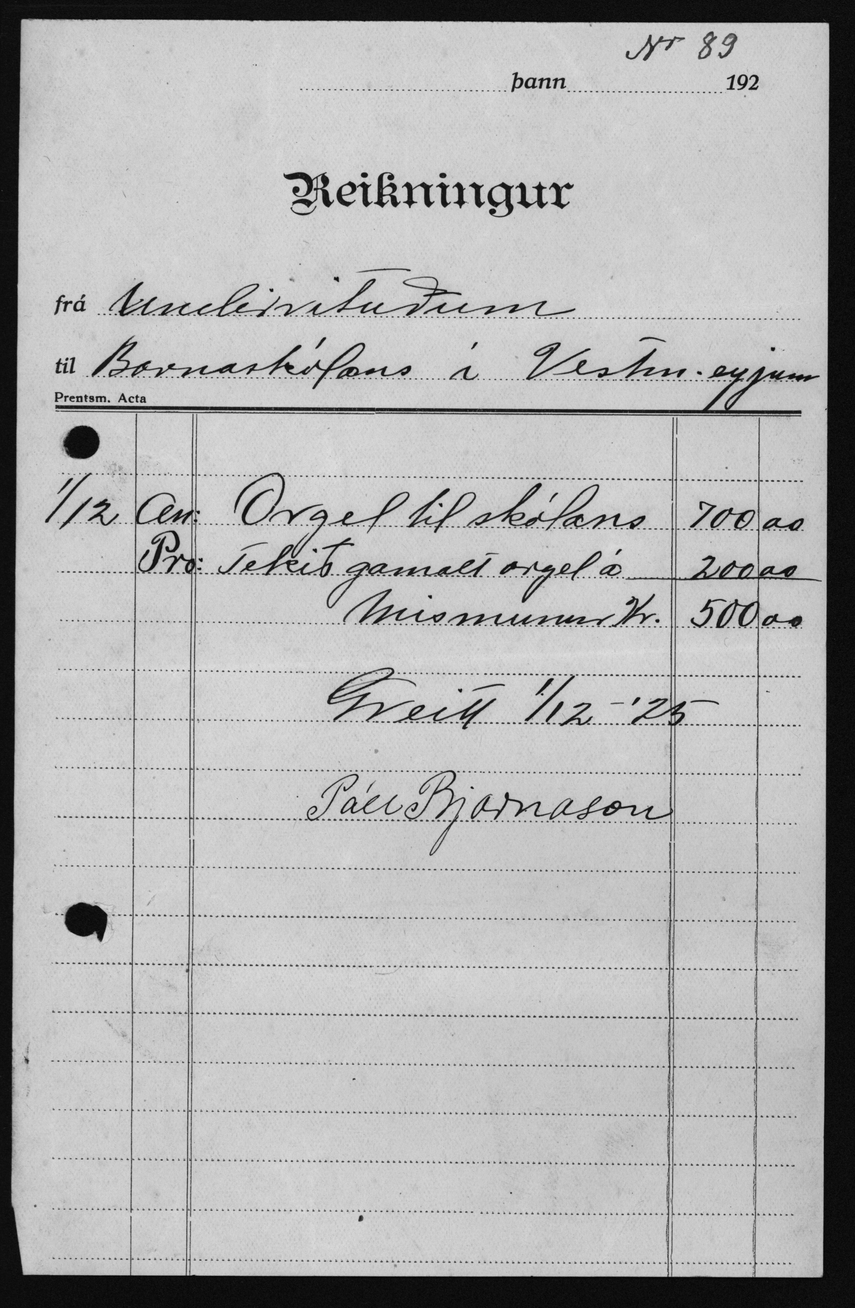 Nr 89
þann 192
Reikningur
frá Undirrituðum
til Barnaskólans í Vestm.eyjum
Prentsm. Acta
1/12 An: Orgel til skólans 700 00
Pro: Tekið gamalt orgel á 200 00
Mismunur Kr. 500 00
Greitt 1/12 - '25
Páll Bjarnason